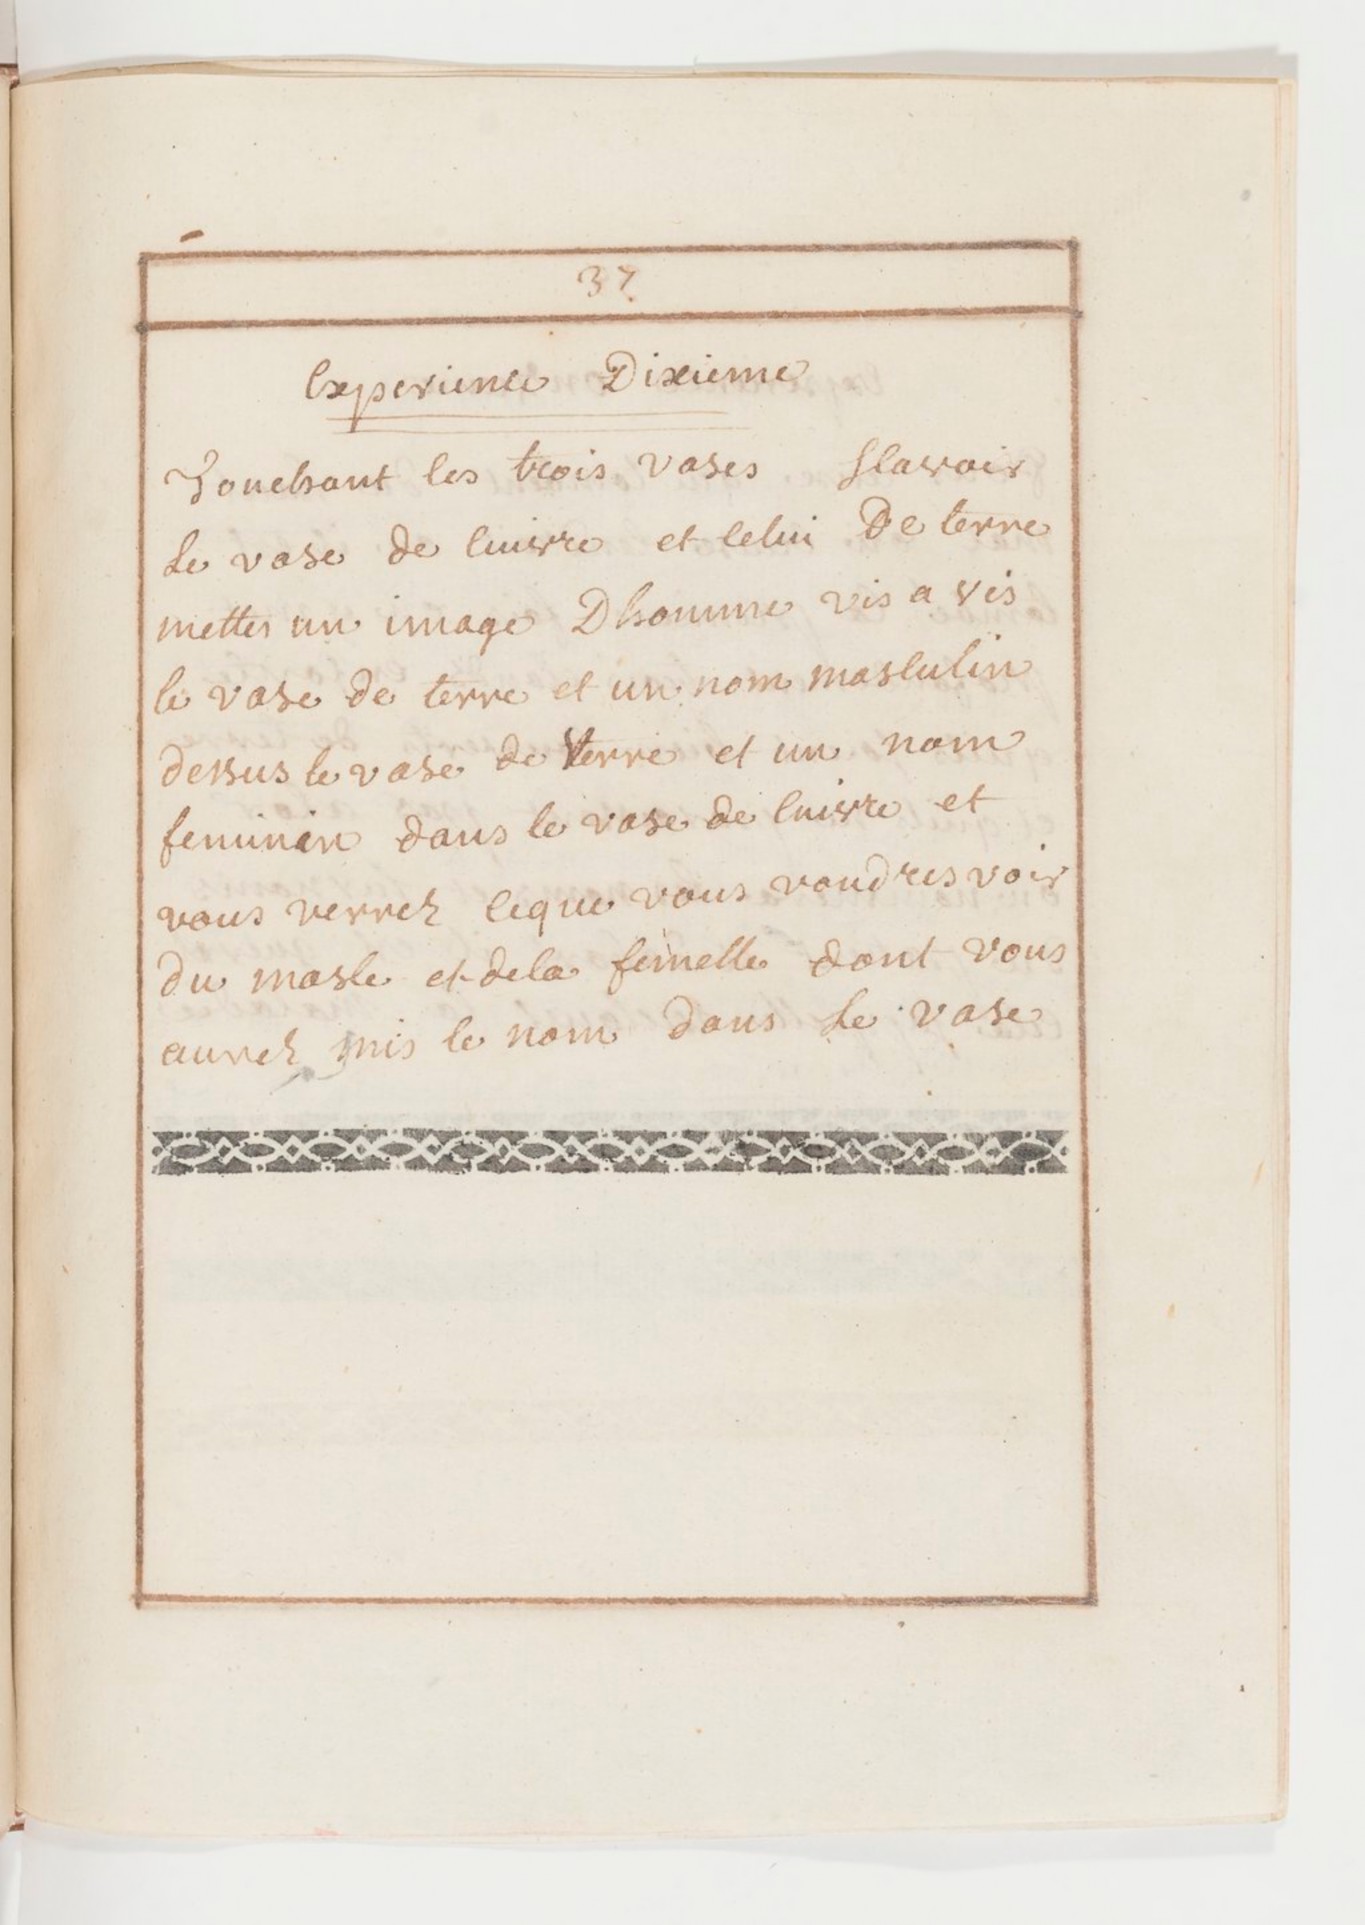 37
Experience Dixieme
Touchant les trois vases Scavoir
Le vase de cuivre et celui De terre
metter un image Dhomme vis a vis
le vase de terre et un nom masculin
dessus le vase de terre et un nom
feminin dans le vase de cuivre et
vous verrez ceque vous voudres voir
du masle et dela femelle dont vous
aurez mis le nom dans Le vase